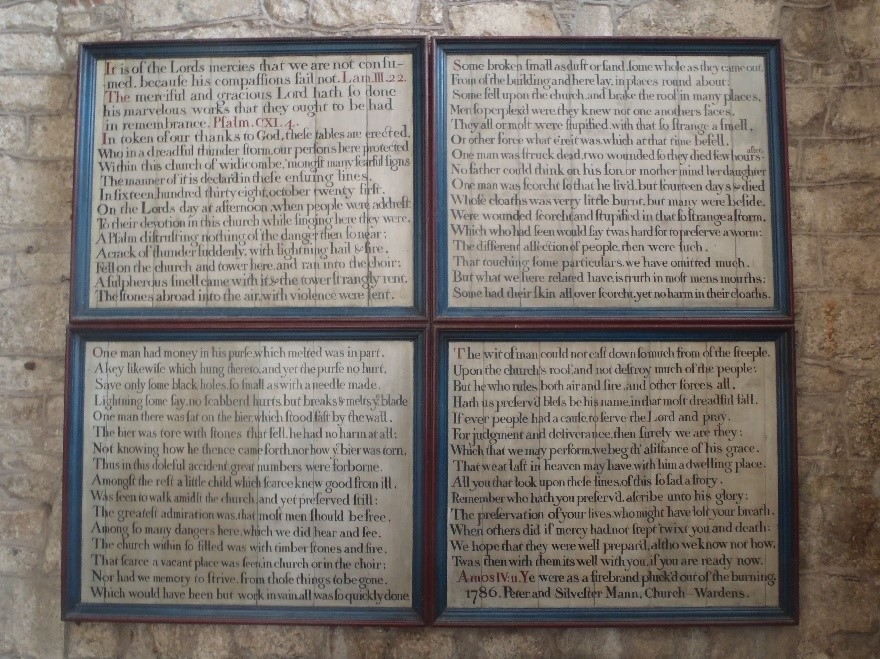 It is of the Lords mercies that we are not consu-
med, because his compassions fail not. Lam. III. 22.
The merciful and gracious Lord hath so done
his marvelous works that they ought to be had
in remembrance. Psalm. CXI. 4.
In token of our thanks to God, these tables are erected,
Who in a dreadful thunder storm, our persons here protected
Within this church of widicombe, 'mongst many fearful signs
The manner of it is declar'd in these ensuing lines,
In sixteen hundred thirty eight, october twenty first.
On the Lords day at afternoon, when people were addrest
To their devotion in this church while singing here they were,
A Psalm distrusting nothing of the danger then so near:
A crack of thunder suddenly, with lightning hail & fire,
Fell on the church and tower here, and ran into the choir:
A sulpherous smell came with it, & the tower strangly rent,
The stones abroad into the air, with violence were sent.
Some broken small as dust or sand, some whole as they came out,
From of the building and here lay, in places round about:
Some fell upon the church, and brake the roof in many places,
Men so perplex'd were, they knew not one anothers faces.
They all or most were stupified, with that so strange a smell,
Or other force what e'reit was, which at that time befell.
One man was struck dead, two wounded so they died few hours after
No father could think on his son, or mother mind her daughter
One man was scorcht so that he liv'd, but fourteen days & died
Whose cloaths was very little burnt, but many were beside.
Were wounded scorch'd and stupified in that so strange a storm,
Which who had seen would say t'was hard for to preserve a worm:
The different affection of people, then were such,
That touching some particulars, we have omitted much.
But what we here related have, is truth in most mens mouths:
Some had their skin all over scorcht, yet no harm in their cloaths.
One man had money in his purse, which melted was in part,
A key likewise which hung thereto, and yet the purse no hurt,
Save only some black holes, so small as with a needle made.
Lightning some say, no scabberd hurts, but breaks & melts yᵉ blade
One man there was sat on the bier, which stood fast by the wall,
The bier was tore with stones that fell, he had no harm at all:
Not knowing how he thence came forth, nor how yᵉ bier was torn,
Thus in this doleful accident, great numbers were forborne.
Amongst the rest a little child, which scarce knew good from ill,
Was seen to walk amidst the church, and yet preserved still:
The greatest admiration was, that most men should be free,
Among so many dangers here, which we did hear and see.
The church within so filled was with timber stones and fire,
That scarce a vacant place was seen, in church or in the choir;
Nor had we memory to strive, from those things to be gone,
Which would have been but work in vain, all was so quickly done
The wit of man could not cast down so much from of the steeple,
Upon the church's roof, and not destroy much of the people:
But he who rules, both air and fire, and other forces all,
Hath us preserv'd bless be his name, in that most dreadful fall.
If ever people had a cause, to serve the Lord and pray,
For judgment and deliverance, then surely we are they:
Which that we may perform, we beg th' assistance of his grace,
That we at last in heaven may have with him a dwelling place.
All you that look upon these lines, of this so sad a story,
Remember who hath you preserv'd, ascribe unto his glory:
The preservation of your lives, who might have lost your breath,
When others did if mercy had not stept 'twixt you and death:
We hope that they were well prepar'd, altho we know not how,
Twas then with them, its well with you, if you are ready now.
Amos IV. 11. Ye were as a firebrand pluck'd out of the burning.
1786. Peter and Silvester Mann, Church-Wardens.